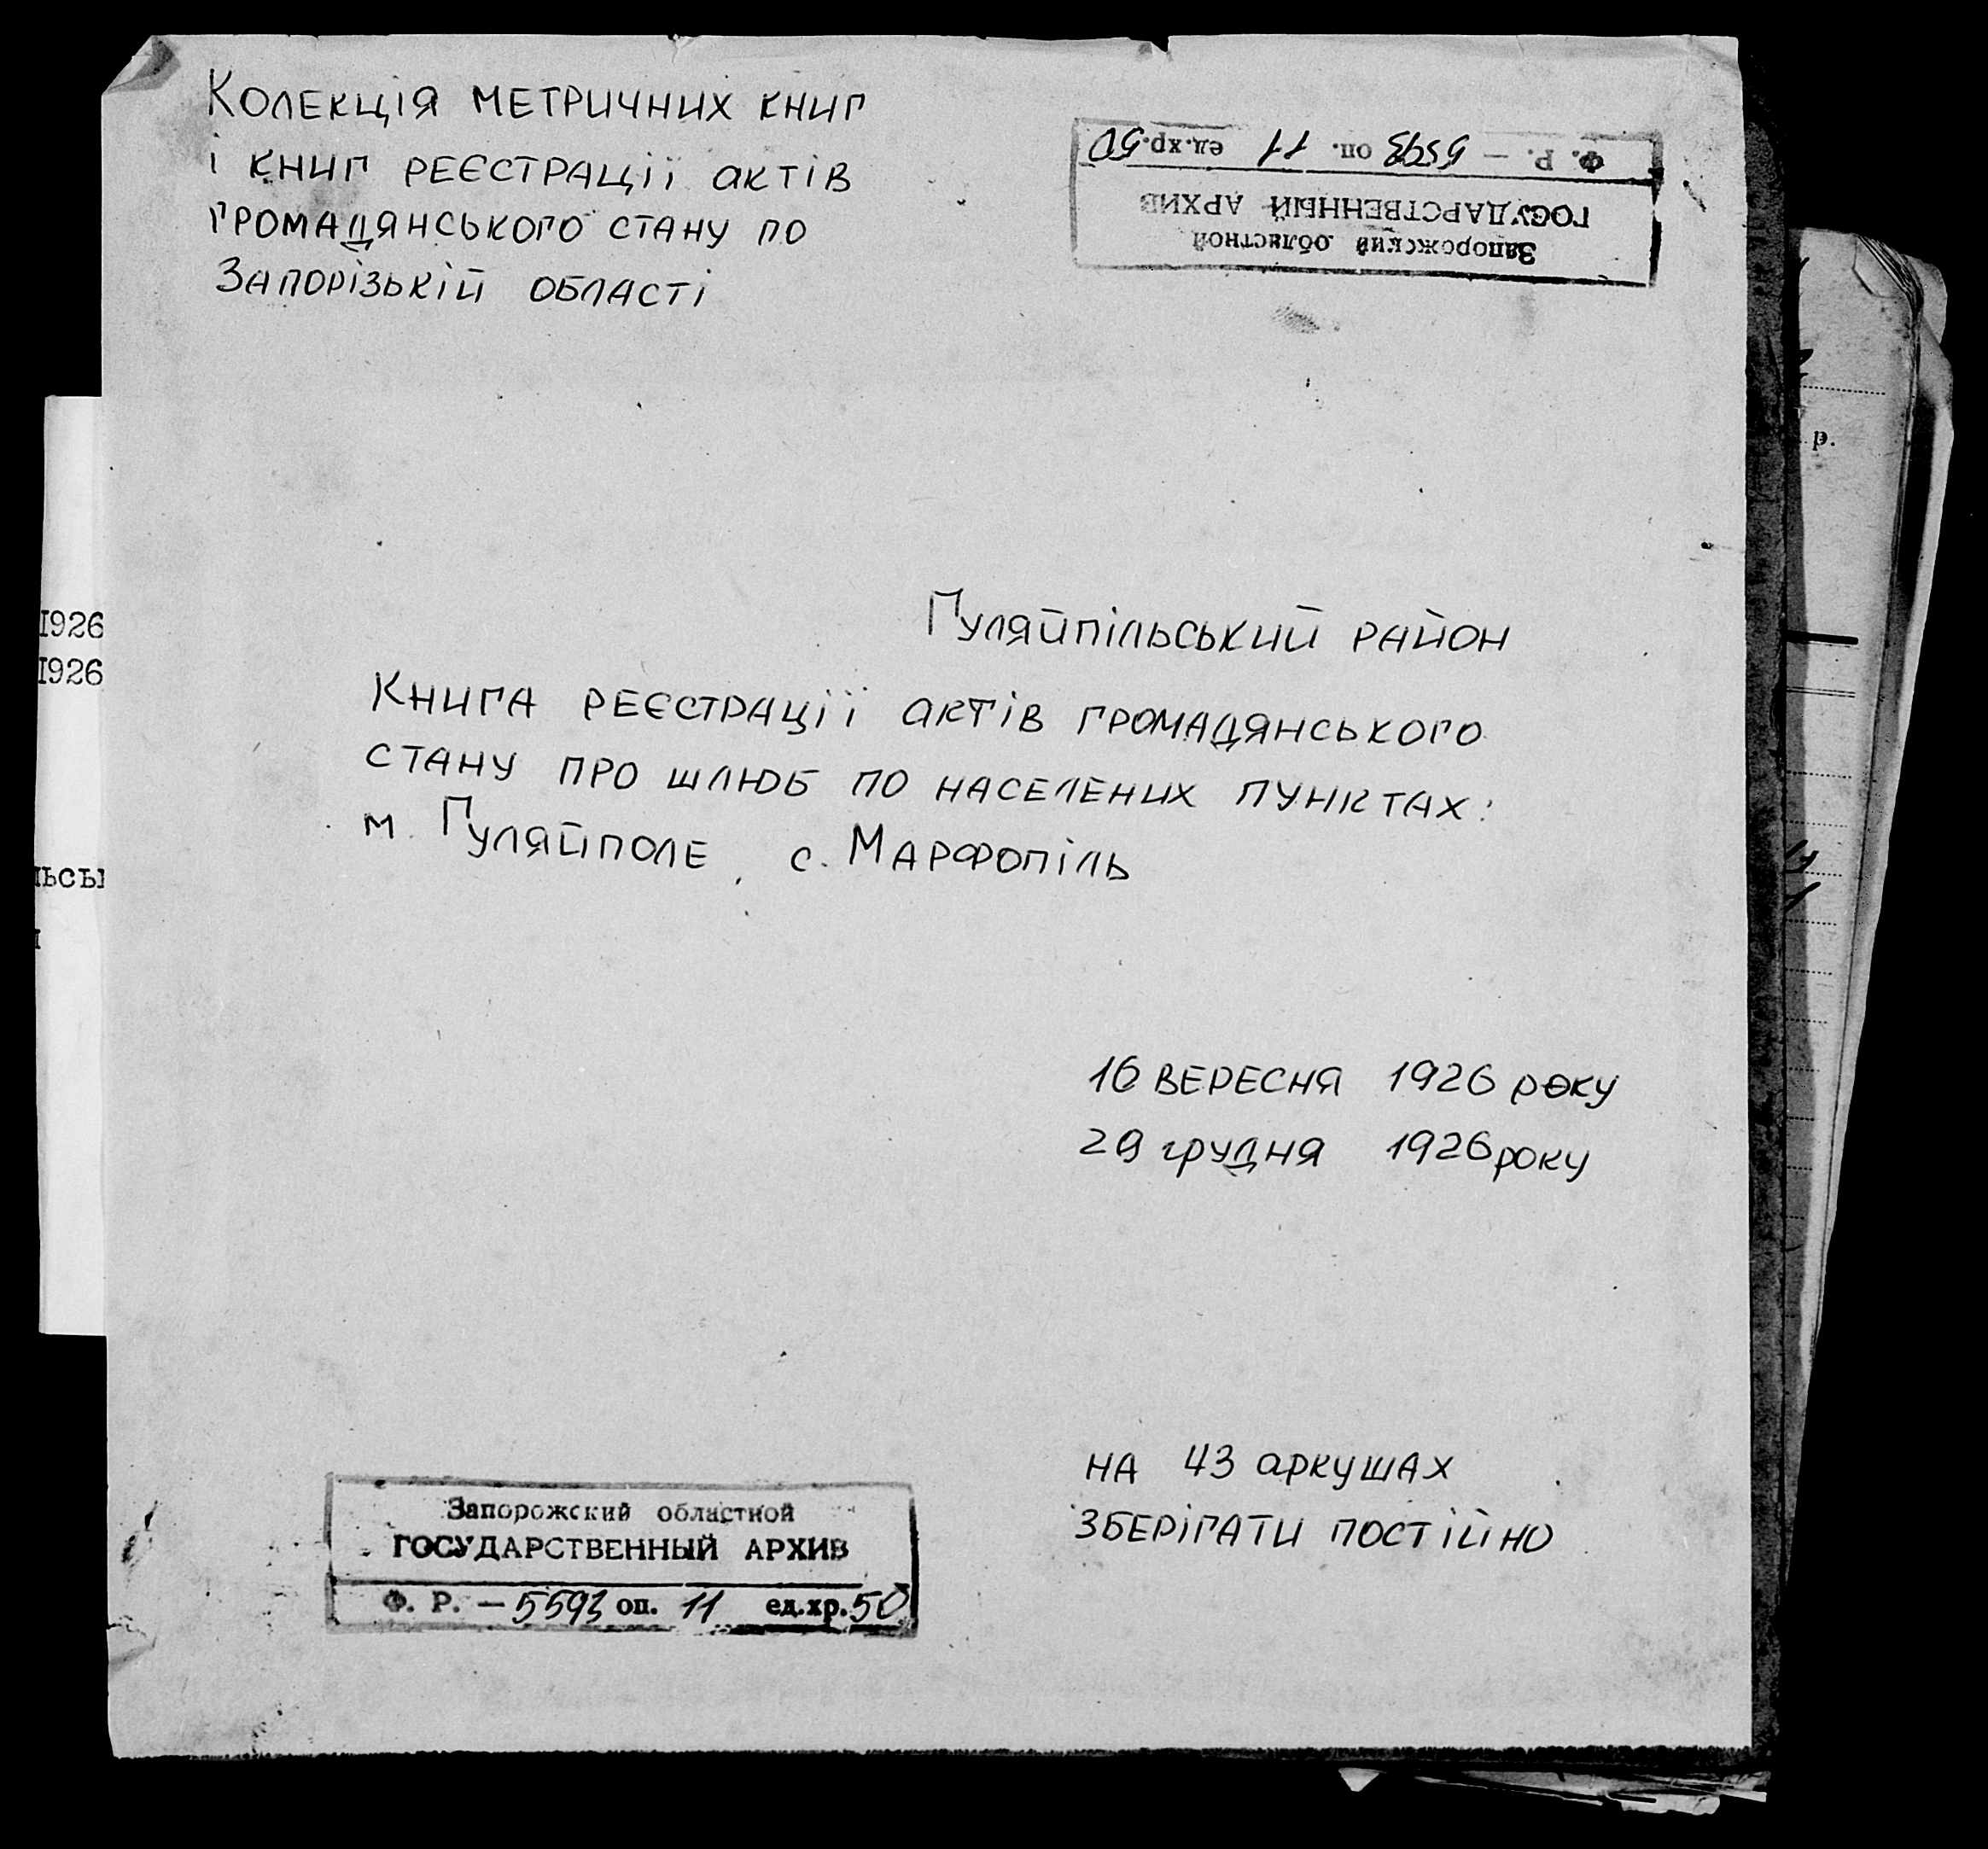 Колекція метричних книг
і книг реєстрації актів
громадянського стану по
Запорізькій області
Ф. Р. — 5593 оп. 11 ед.хр. 50
ГОСУДАРСТВЕННЫЙ АРХИВ
Запорожский областной
1926
1926
Гуляйпільський район
Книга реєстрації актів громадянського
стану про шлюб по населених пунктах:
м. Гуляйполе, с. Марфопіль
р.
16 вересня 1926 року
29 грудня 1926 року
на 43 аркушах
зберігати постійно
Запорожский областной
ГОСУДАРСТВЕННЫЙ АРХИВ
Ф. Р. — 5593 оп. 11 ед.хр. 50